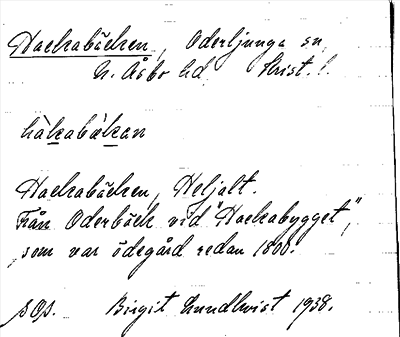 Hackabäcken, Oderljunga sn,
N. Åsbo hd, Krist. l.
hàkabäkan
Hackabäcken, Heljalt.
Från Oderbäck vid "Hackabygget",
som var ödegård redan 1800.
SOp. Birgit Lundkvist 1938.